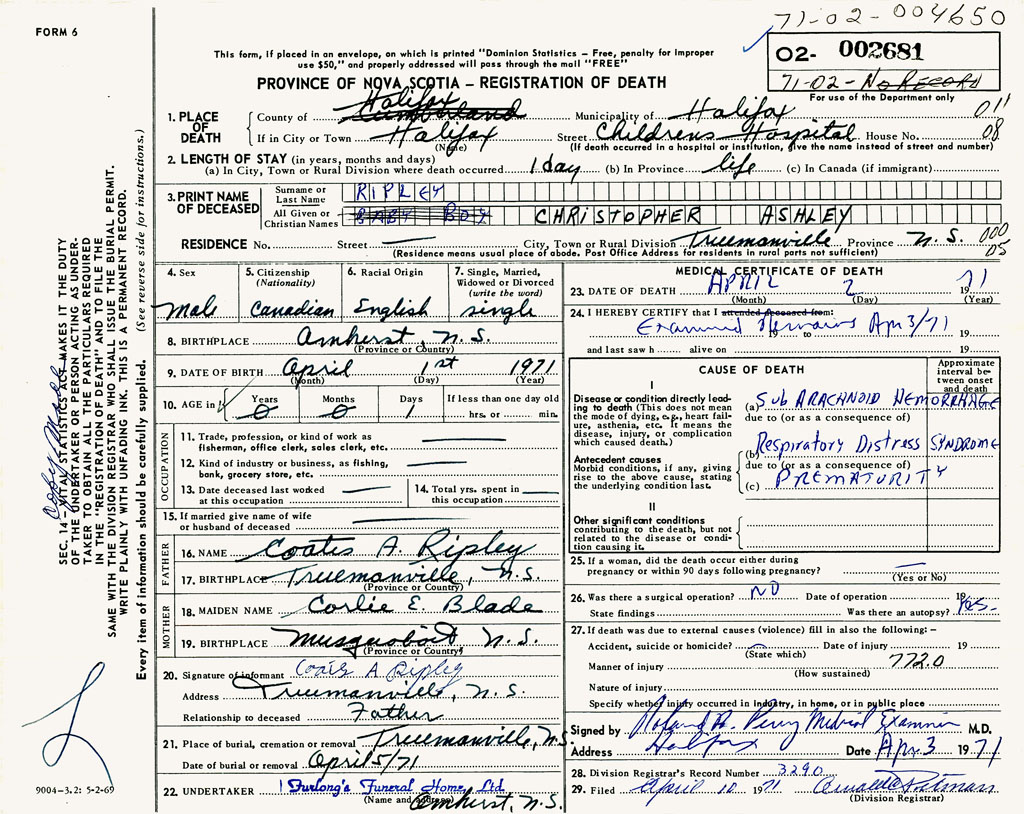 71-02-004650
FORM 6
This form, if placed in an envelope, on which is printed "Dominion Statistics – Free, penalty for improper
use $50," and properly addressed will pass through the mail "FREE"
02- 002681
71-02-No RECORD
For use of the Department only
PROVINCE OF NOVA SCOTIA – REGISTRATION OF DEATH
1. PLACE OF DEATH
Halifax
County of Cumberland Municipality of Halifax 011
If in City or Town Halifax Street Childrens Hospital House No. 08
(Name) (If death occurred in a hospital or institution, give the name instead of street and number)
2. LENGTH OF STAY (in years, months and days)
(a) In City, Town or Rural Division where death occurred 1 day (b) In Province life (c) In Canada (if immigrant)
3. PRINT NAME OF DECEASED
Surname or Last Name RIPLEY
All Given or Christian Names BABY BOY CHRISTOPHER ASHLEY
RESIDENCE No. Street City, Town or Rural Division Truemanville Province N.S. 000
(Residence means usual place of abode. Post Office Address for residents in rural parts not sufficient) 05
4. Sex
male
5. Citizenship
(Nationality)
Canadian
6. Racial Origin
English
7. Single, Married,
Widowed or Divorced
(write the word)
single
8. BIRTHPLACE Amherst, N.S.
(Province or Country)
9. DATE OF BIRTH April 1st 1971
(Month) (Day) (Year)
10. AGE in Years 0 Months 0 Days 1 If less than one day old
hrs. or min.
OCCUPATION
11. Trade, profession, or kind of work as
fisherman, office clerk, sales clerk, etc.
12. Kind of industry or business, as fishing,
bank, grocery store, etc.
13. Date deceased last worked
at this occupation
14. Total yrs. spent in
this occupation
15. If married give name of wife
or husband of deceased
FATHER
16. NAME Coates A. Ripley
17. BIRTHPLACE Truemanville, N.S.
(Province or Country)
MOTHER
18. MAIDEN NAME Corlie E. Blade
19. BIRTHPLACE Musquoboit N.S.
(Province or Country)
20. Signature of informant Coates A Ripley
Address Truemanville, N.S.
Relationship to deceased Father
21. Place of burial, cremation or removal Truemanville, N.S.
Date of burial or removal April 5/71
22. UNDERTAKER Furlong's Funeral Home, Ltd.
(Name and address) Amherst, N.S.
MEDICAL CERTIFICATE OF DEATH
23. DATE OF DEATH APRIL 2 1971
(Month) (Day) (Year)
24. I HEREBY CERTIFY that I attended deceased from:
Examined Remains Apr 3/71 to 19
and last saw h alive on 19
CAUSE OF DEATH
Approximate
interval be-
tween onset
and death
I
Disease or condition directly lead-
ing to death (This does not mean
the mode of dying, e.g., heart failure,
asthenia, etc. It means the
disease, injury, or complication
which caused death.)
(a) Sub ARACHNOID HEMORRHAGE
due to (or as a consequence of)
(b) Respiratory Distress SYNDROME
Antecedent causes
Morbid conditions, if any, giving
rise to the above cause, stating
the underlying condition last.
due to (or as a consequence of)
(c) PREMATURITY
II
Other significant conditions
contributing to the death, but not
related to the disease or condi-
tion causing it.
25. If a woman, did the death occur either during
pregnancy or within 90 days following pregnancy?
(Yes or No)
26. Was there a surgical operation? NO Date of operation 19
State findings Was there an autopsy? Yes-
27. If death was due to external causes (violence) fill in also the following: –
Accident, suicide or homicide? Date of injury 19
(State which)
Manner of injury 772.0
(How sustained)
Nature of injury
Specify whether injury occurred in industry, in home, or in public place
Signed by Roland H. Perry Medical Examiner M.D.
Address Halifax Date Apr. 3 1971
28. Division Registrar's Record Number 3290
29. Filed April 10 1971
(Division Registrar)
SEC. 14 – VITAL STATISTICS ACT MAKES IT THE DUTY
OF THE UNDERTAKER OR PERSON ACTING AS UNDER-
TAKER TO OBTAIN ALL THE PARTICULARS REQUIRED
IN THE "REGISTRATION OF DEATH" AND TO FILE THE
SAME WITH THE DIVISION REGISTRAR WHO SHALL ISSUE THE BURIAL PERMIT.
WRITE PLAINLY WITH UNFADING INK. THIS IS A PERMANENT RECORD.
Every item of information should be carefully supplied. (See reverse side for instructions.)
9004-3.2: 5-2-69